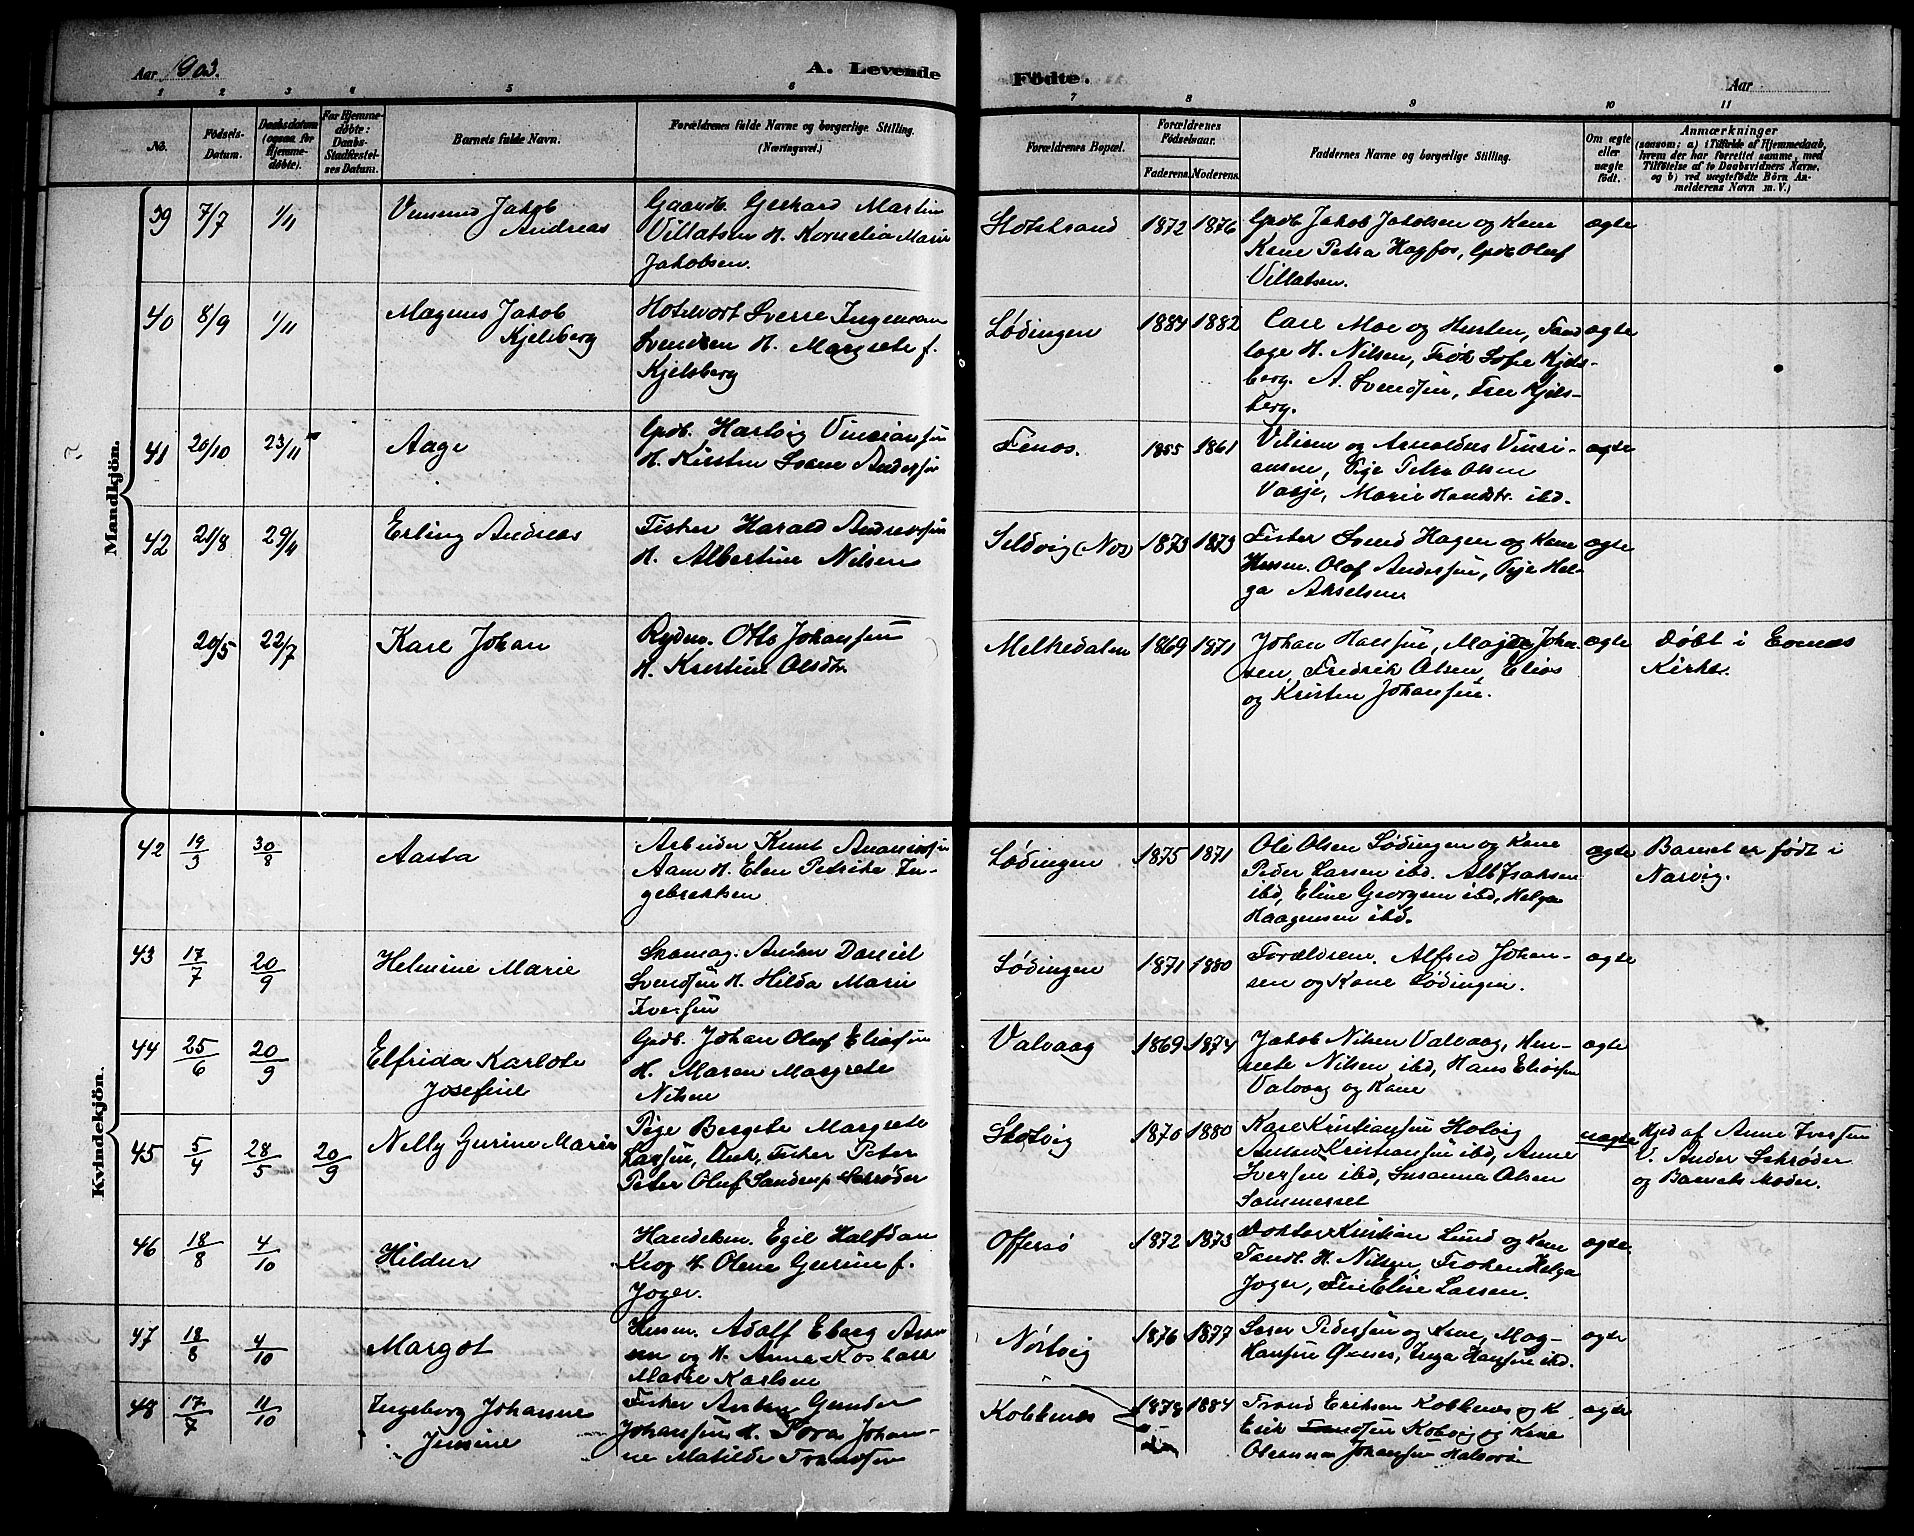 Aar 1903.
A. Levende Fødte.
Aar
1 2 3 4 5 6 7 8 9 10 11
No.
Födsels-
Datum.
Daabsdatum
(ogsaa for
Hjemme-
döbte).
For Hjemme-
döbte:
Daabs-
Stadfæstel-
ses Datum.
Barnets fulde Navn.
Forældrenes fulde Navne og borgerlige Stilling.
(Næringsvei.)
Forældrenes Bopæl.
Forældrenes
Födselsaar.
Faderens. Moderens.
Faddernes Navne og borgerlig Stilling.
Om ægte
eller
uægte
födt.
Anmærkninger
(saasom: a) i Tilfælde af Hjemmedaab,
hvem der har forrettet samme, med
Tilföielse af to Daabsvidners Navne,
og b) ved uægtefödte Börn An-
melderens Navn m. V.)
Mandkjön.
39 7/7 1/11 Jakob
Andreas
Gaardb. Gerhard Martin
Villatsen H. Kornelia Marie
Jakobsen.
1872 1876
Gpdb Jakob Jakobsen og Kone
Kone Petra Hagfos, Gpdb Oluf
Villatsen.
ægte
40 8/9 1/11 Magnus Jakob
Kjelsberg
Hotelvort Sverre Ingemann
Svendsen H. Margrete f.
Kjelsberg
Lødingen 1884 1882
Carl Moe og Hustru,
H. Nilsen, Frøk Sofie Kjels-
berg. A. Svendsen, Fru Kjels-
berg.
ægte
41 20/10 23/11 Aage
Gpdb. Hartvig
H. Kirsten
1855 1861
og Arnoldus
Pige Petra Olsen
Marie ibd.
ægte
42 21/8 29/11 Erling Andreas
Fisker Harald Andreassen
H. Albertine Nilsen
Sildvig (Nos) 1873 1873
Fisker Svend Hagen og Kone
Husm. Olaf Andersen, Pige Hel-
ga Akselsen
ægte
20/5 22/7 Karl Johan
Rydm. Otto Johansen
H. Kristine Olsdtr
Melkedalen 1869 1871
Johan Hansen, Magda Johan-
sen, Fredrik Olsen, Elias
og Kristen Johansen.
ægte
Døbt i Evenes
Kirke.
Kvindekjön.
42 19/3 30/8 Aasta
Arbeider Knut Ananiassen
Aam H. Elen Petrikke In-
gebrektsen
Lødingen 1875 1871
Ole Olsen Lødingen og Kone
Peder Larsen ibd. Alb Isaksen
ibd, Eline Georgsen ibd, Helga
Haagensen ibd.
ægte
Barnet er født i
Narvig.
43 17/7 20/9 Helmine Marie
Skomag. Anton Daniel
Svendsen H. Hilda Marie
Iversen
Lødingen 1871 1880
Forældrene. Alfred Johan-
sen og Kone Lødingen.
ægte
44 25/6 20/9 Elfrida Karlote
Josefine
Gpdb. Johan Oluf Eliassen
H. Maren Margrete
Nilsen
Valvaag 1869 1874
Jakob Nilsen Valvaag, Hen-
rette Nilsen ibd, Hans Eliassen
Valvaag og Kone
ægte
45 5/4 28/5 20/9 Nelly Gurine Marie
Pige Bergete Margrete
Larsen, Fisker Peter
Peter Oluf Schrøder
1870 1880
Karl Kristiansen
Anton Kristiansen ibd, Anne
Iversen ibd, Susanna Olsen
Sommerset
uægte
Hjd af Anne Iversen
V. Ander Schrøder
og Barnets Moder.
46 18/8 4/10 Hildur
Handelsm. Egil Halfdan
Krog H Olene Gurine f.
Joger.
Offersø 1872 1873
Doktor Kristian Lund og Kone
Tandl. H. Nilsen, Frøken Helga
Joger, Frk Elise Larsen.
ægte.
47 18/8 4/10 Margot
Husm. Adolf Eberg
og H. Anna
Marie Karlsen
Nørtvig 1876 1877
Pedersen og Kone, Mag-
Hansen Øxnes, Inga Hansen ibd.
ægte
48 17/7 11/10 Ingeborg Johanne
Jensine
Fisker Anton Gunder
Johansen H. Tora Johan-
ne Matilde Trondsen
Kobbenæs 1878 1884
Trond Eriksen Kobbenes og K.
Erik Kobvig og Kone
Oleanna Johansen
ægte